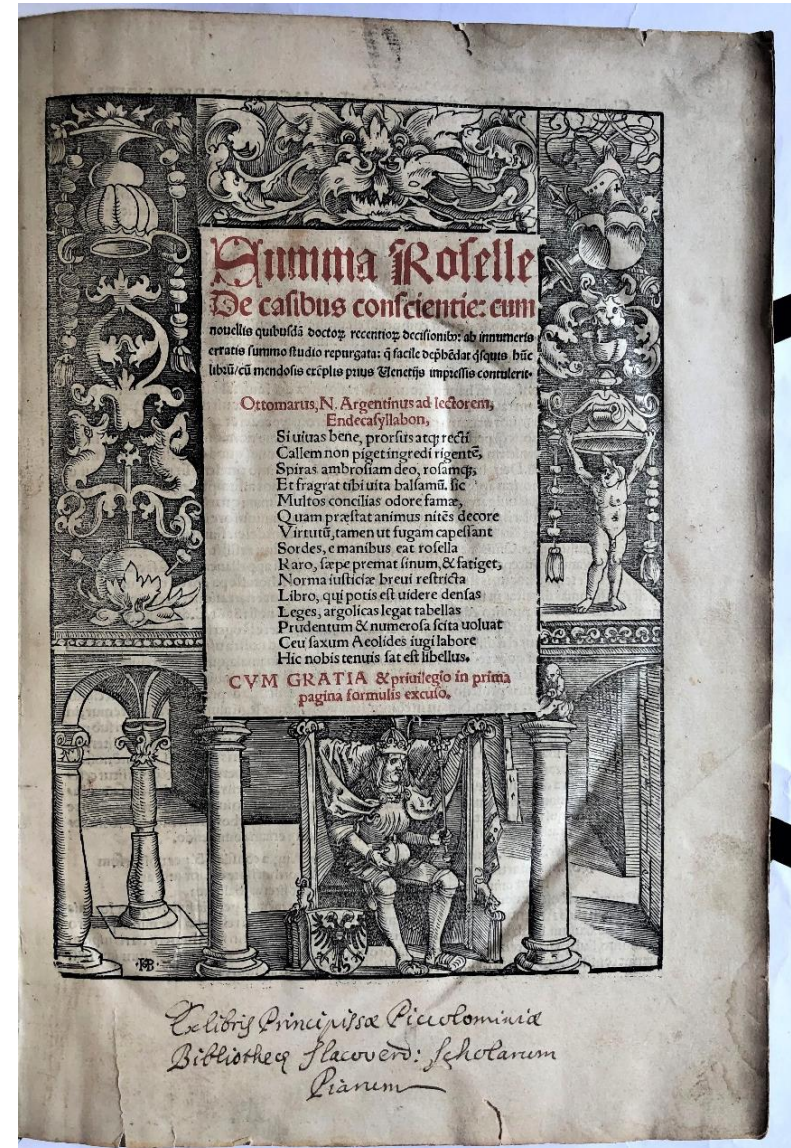 Summa Roselle
De casibus conscientie: cum
nouellis quibusdā doctoꝝ recentioꝝ decisionibꝰ: ab innumeris
erratis summo studio repurgata: ꝙ facile dep̄hēdat q̇squis hūc
librū/cū mendosis exēplis prius Uenetijs impressis contulerit.
Ottomarus, N. Argentinus ad lectorem,
Endecasyllabon,
Si uiuas bene, prorsus atqꝫ recti
Callem non piget ingredi rigentē,
Spiras ambrosiam deo, rosamqꝫ,
Et fragrat tibi uita balsamū. sic
Multos concilias odore famæ,
Quam præstat animus nitēs decore
Virtutū, tamen ut fugam capessant
Sordes, e manibus eat rosella
Raro, sæpe premat sinum, & fatiget,
Norma iusticiæ breui restricta
Libro, qui potis est uidere densas
Leges, argolicas legat tabellas
Prudentum & numerosa scita uoluat
Ceu saxum Aeolides iugi labore
Hic nobis tenuis sat est libellus.
CVM GRATIA & priuilegio in prima
pagina formulis excuso.
HB
Ex libris Principissæ Piccolominiæ
Bibliothecę Slacoverd: Scholarum
Piarum